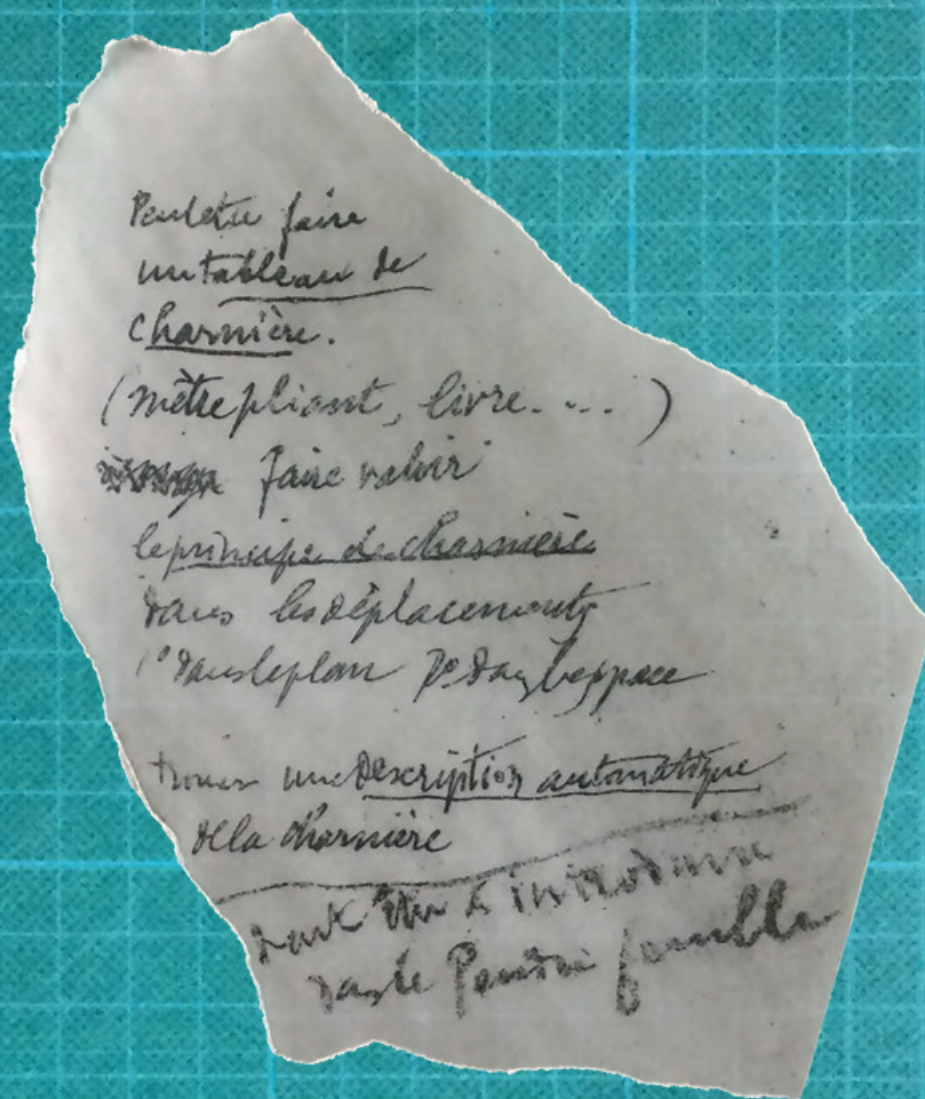 Peut être faire
un tableau de
charnière.
(mètre pliant, livre. ...)
faire valoir
le principe de charnière
dans les déplacements
1° dans le plan 2° dans l'espace
trouver une description automatique
de la charnière
Peut être à introduire
dans le Pendu femelle